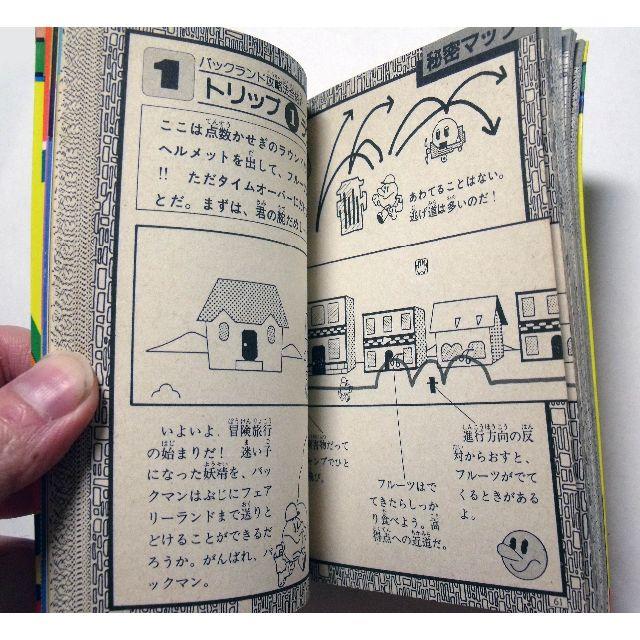 1
パックランド攻略
トリップ1
ここは点数かせぎのラウン
ヘルメットを出して、フルー
!! ただタイムオーバーに
とだ。まずは、君の腕だめし
いよいよ、冒険旅行
の始まりだ! 迷い子
になった妖精を、パッ
クマンはぶじにフェア
リーランドまで送りと
どけることができるだ
ろうか。がんばれ、パ
ックマン。
秘密マップ
あわてることはない。
逃げ道は多いのだ!
害物だって
ャンプでひと
飛び。
フルーツはで
てきたらしっか
り食べよう。高
得点への近道だ。
進行方向の反
対からおすと、
フルーツがでて
くるときがある
よ。
61